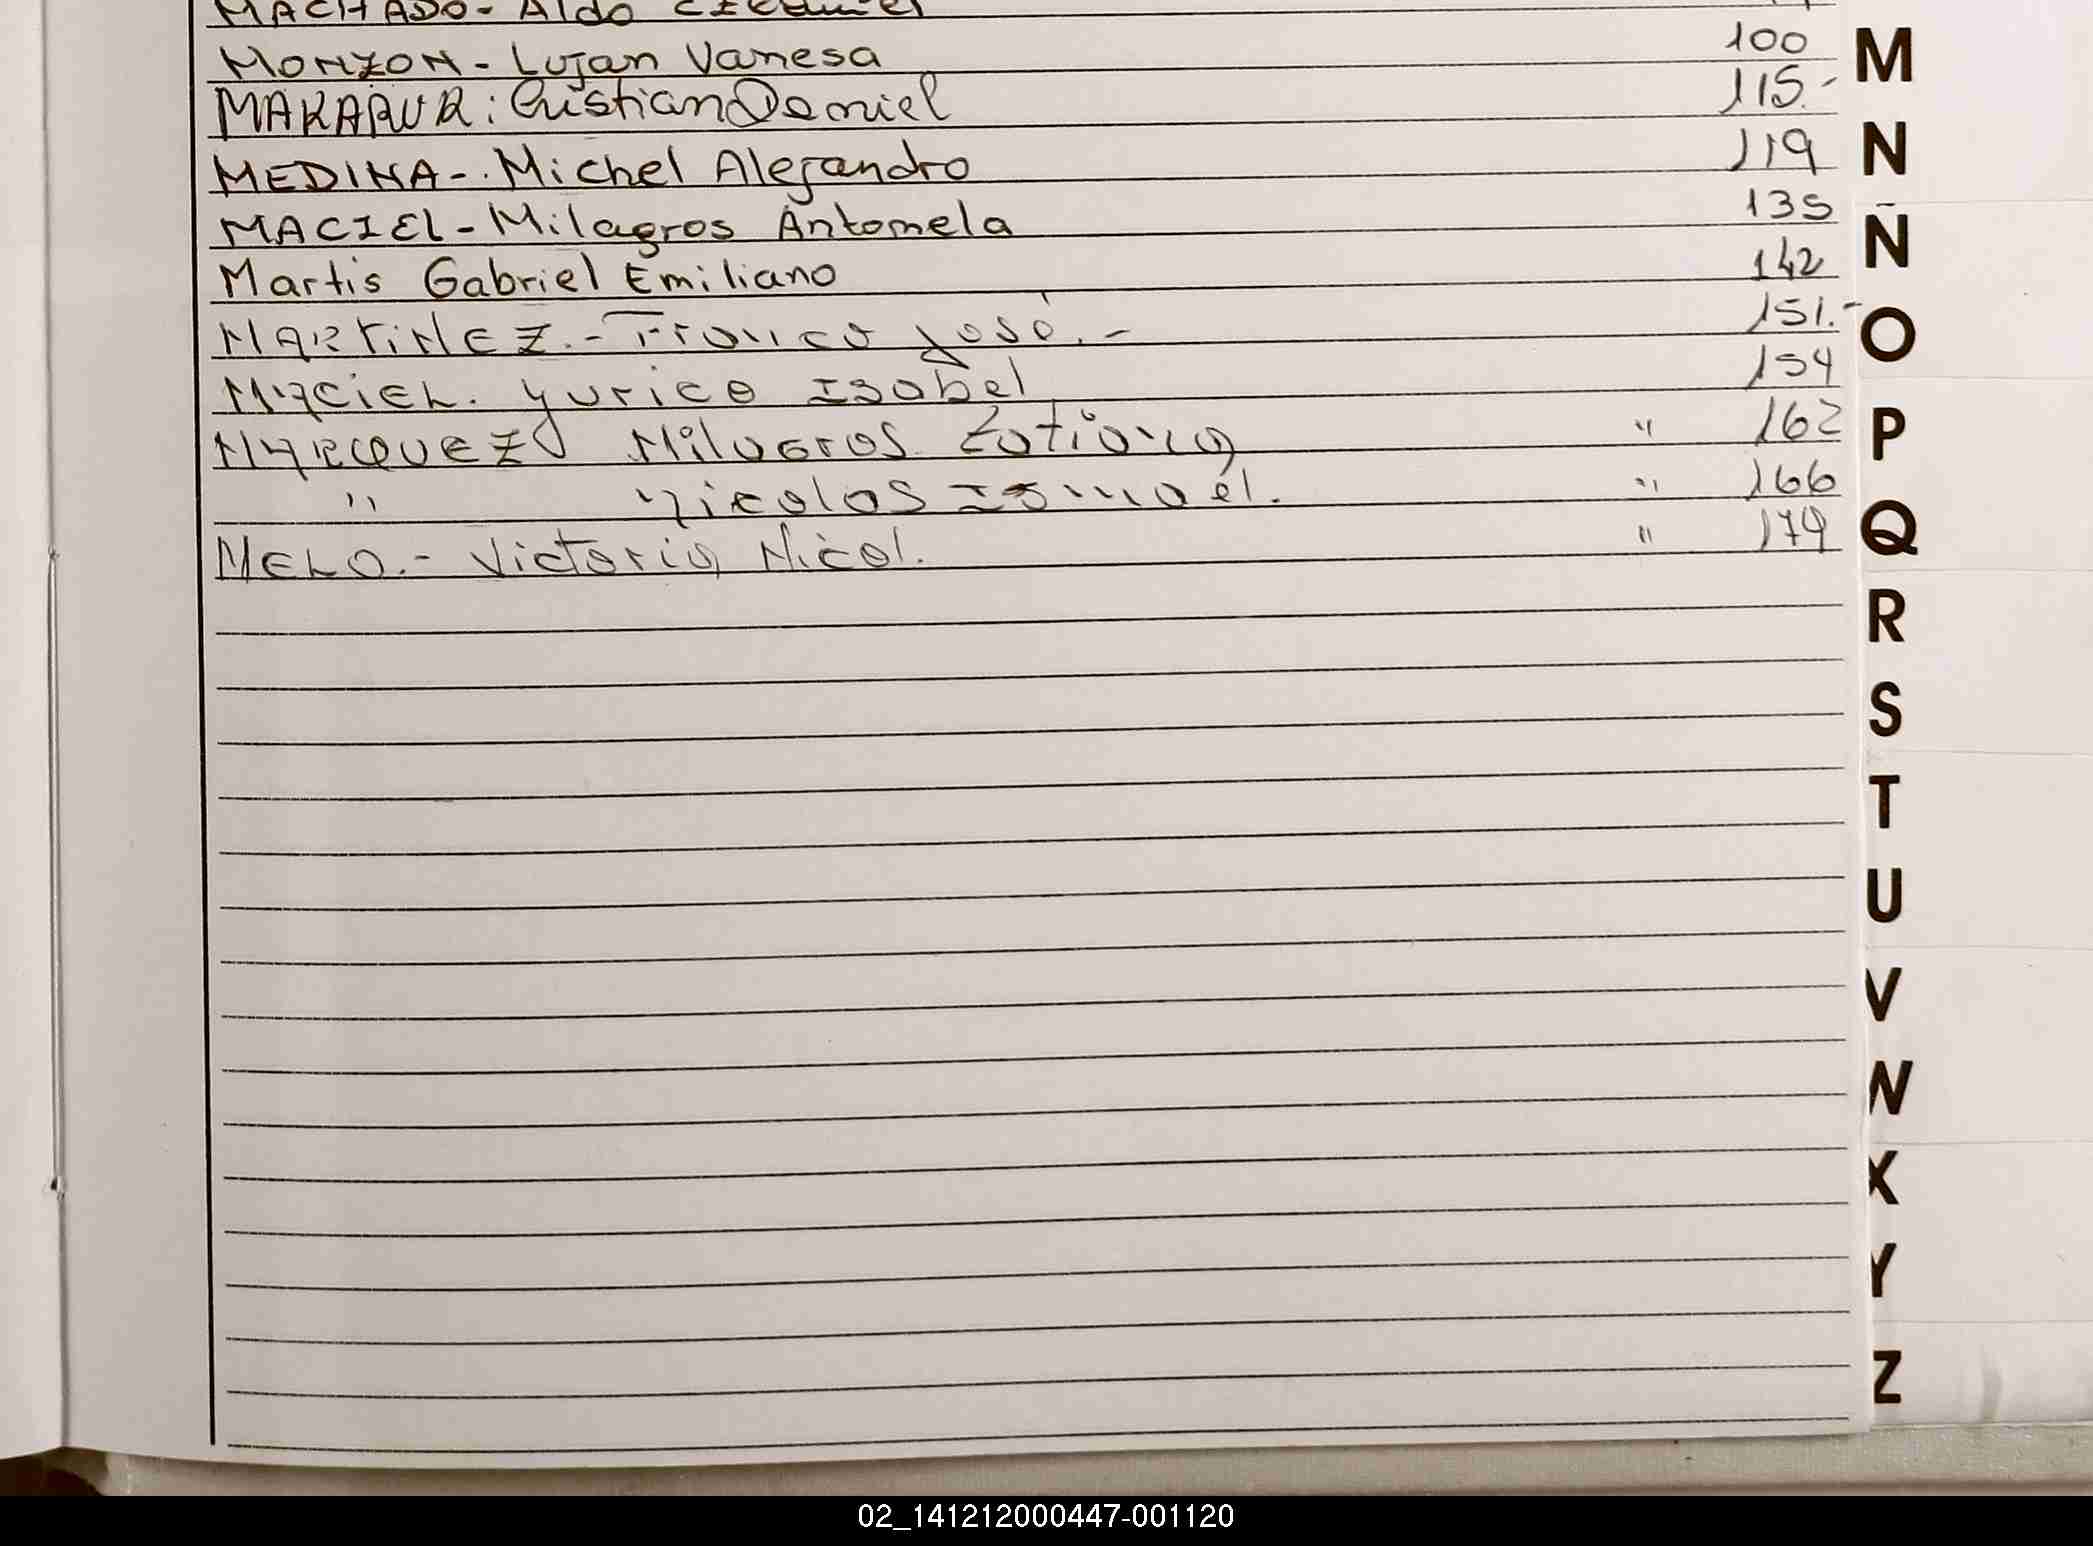 MACHADO - Aldo
MONZON - Lujan Vanesa 100
MAKARUR: Cristian Daniel 115.-
MEDINA -. Michel Alejandro 119
MACIEL - Milagros Antonela 135
Martis Gabriel Emiliano 142
MARTINEZ.- Franco José.- 151.-
MACIEL. Yurico Isabel 154
MARQUEZ Milagros " 162
" Nicolas Ismael. " 166
MELO.- Victoria Nicol. " 179
M
N
Ñ
O
P
Q
R
S
T
U
V
W
X
Y
Z
02_141212000447-001120